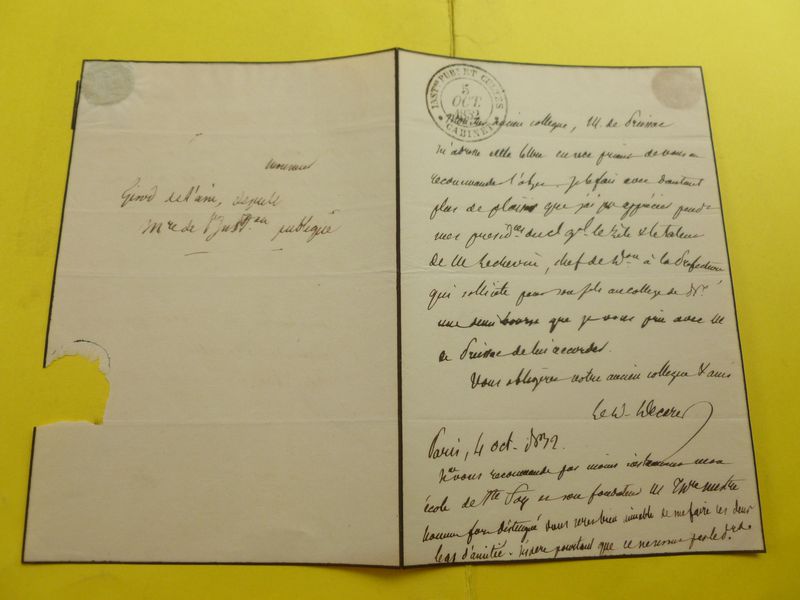 Monsieur
Girod de l'ain, député
Mre de l'Instron publique
INSTon PUBe ET CULTES
5
OCT.
1832
CABINET
Mon cher ancien collegue, M. de Preissac
m'adresse cette lettre en me priant de vous en
recommander l'objet. Je le fais avec d'autant
plus de plaisir que j'ai pu apprécier pendt
mes le zèle & le talent
de M Lechevin, chef de Don à la Préfecture
qui sollicite pour son fils au collège de
une demi bourse que je vous prie avec M
de Preissac de lui accorder.
Vous obligerez votre ancien collegue & ami
Paris, 4 oct. 1832.
vous recommande pas moins instamment mon
école de Ste Foy et son fondateur M
homme fort distingué vous serez bien aimable de me faire ces deux
legs d'amitié. J'espère pourtant que ce ne sont pas le dr